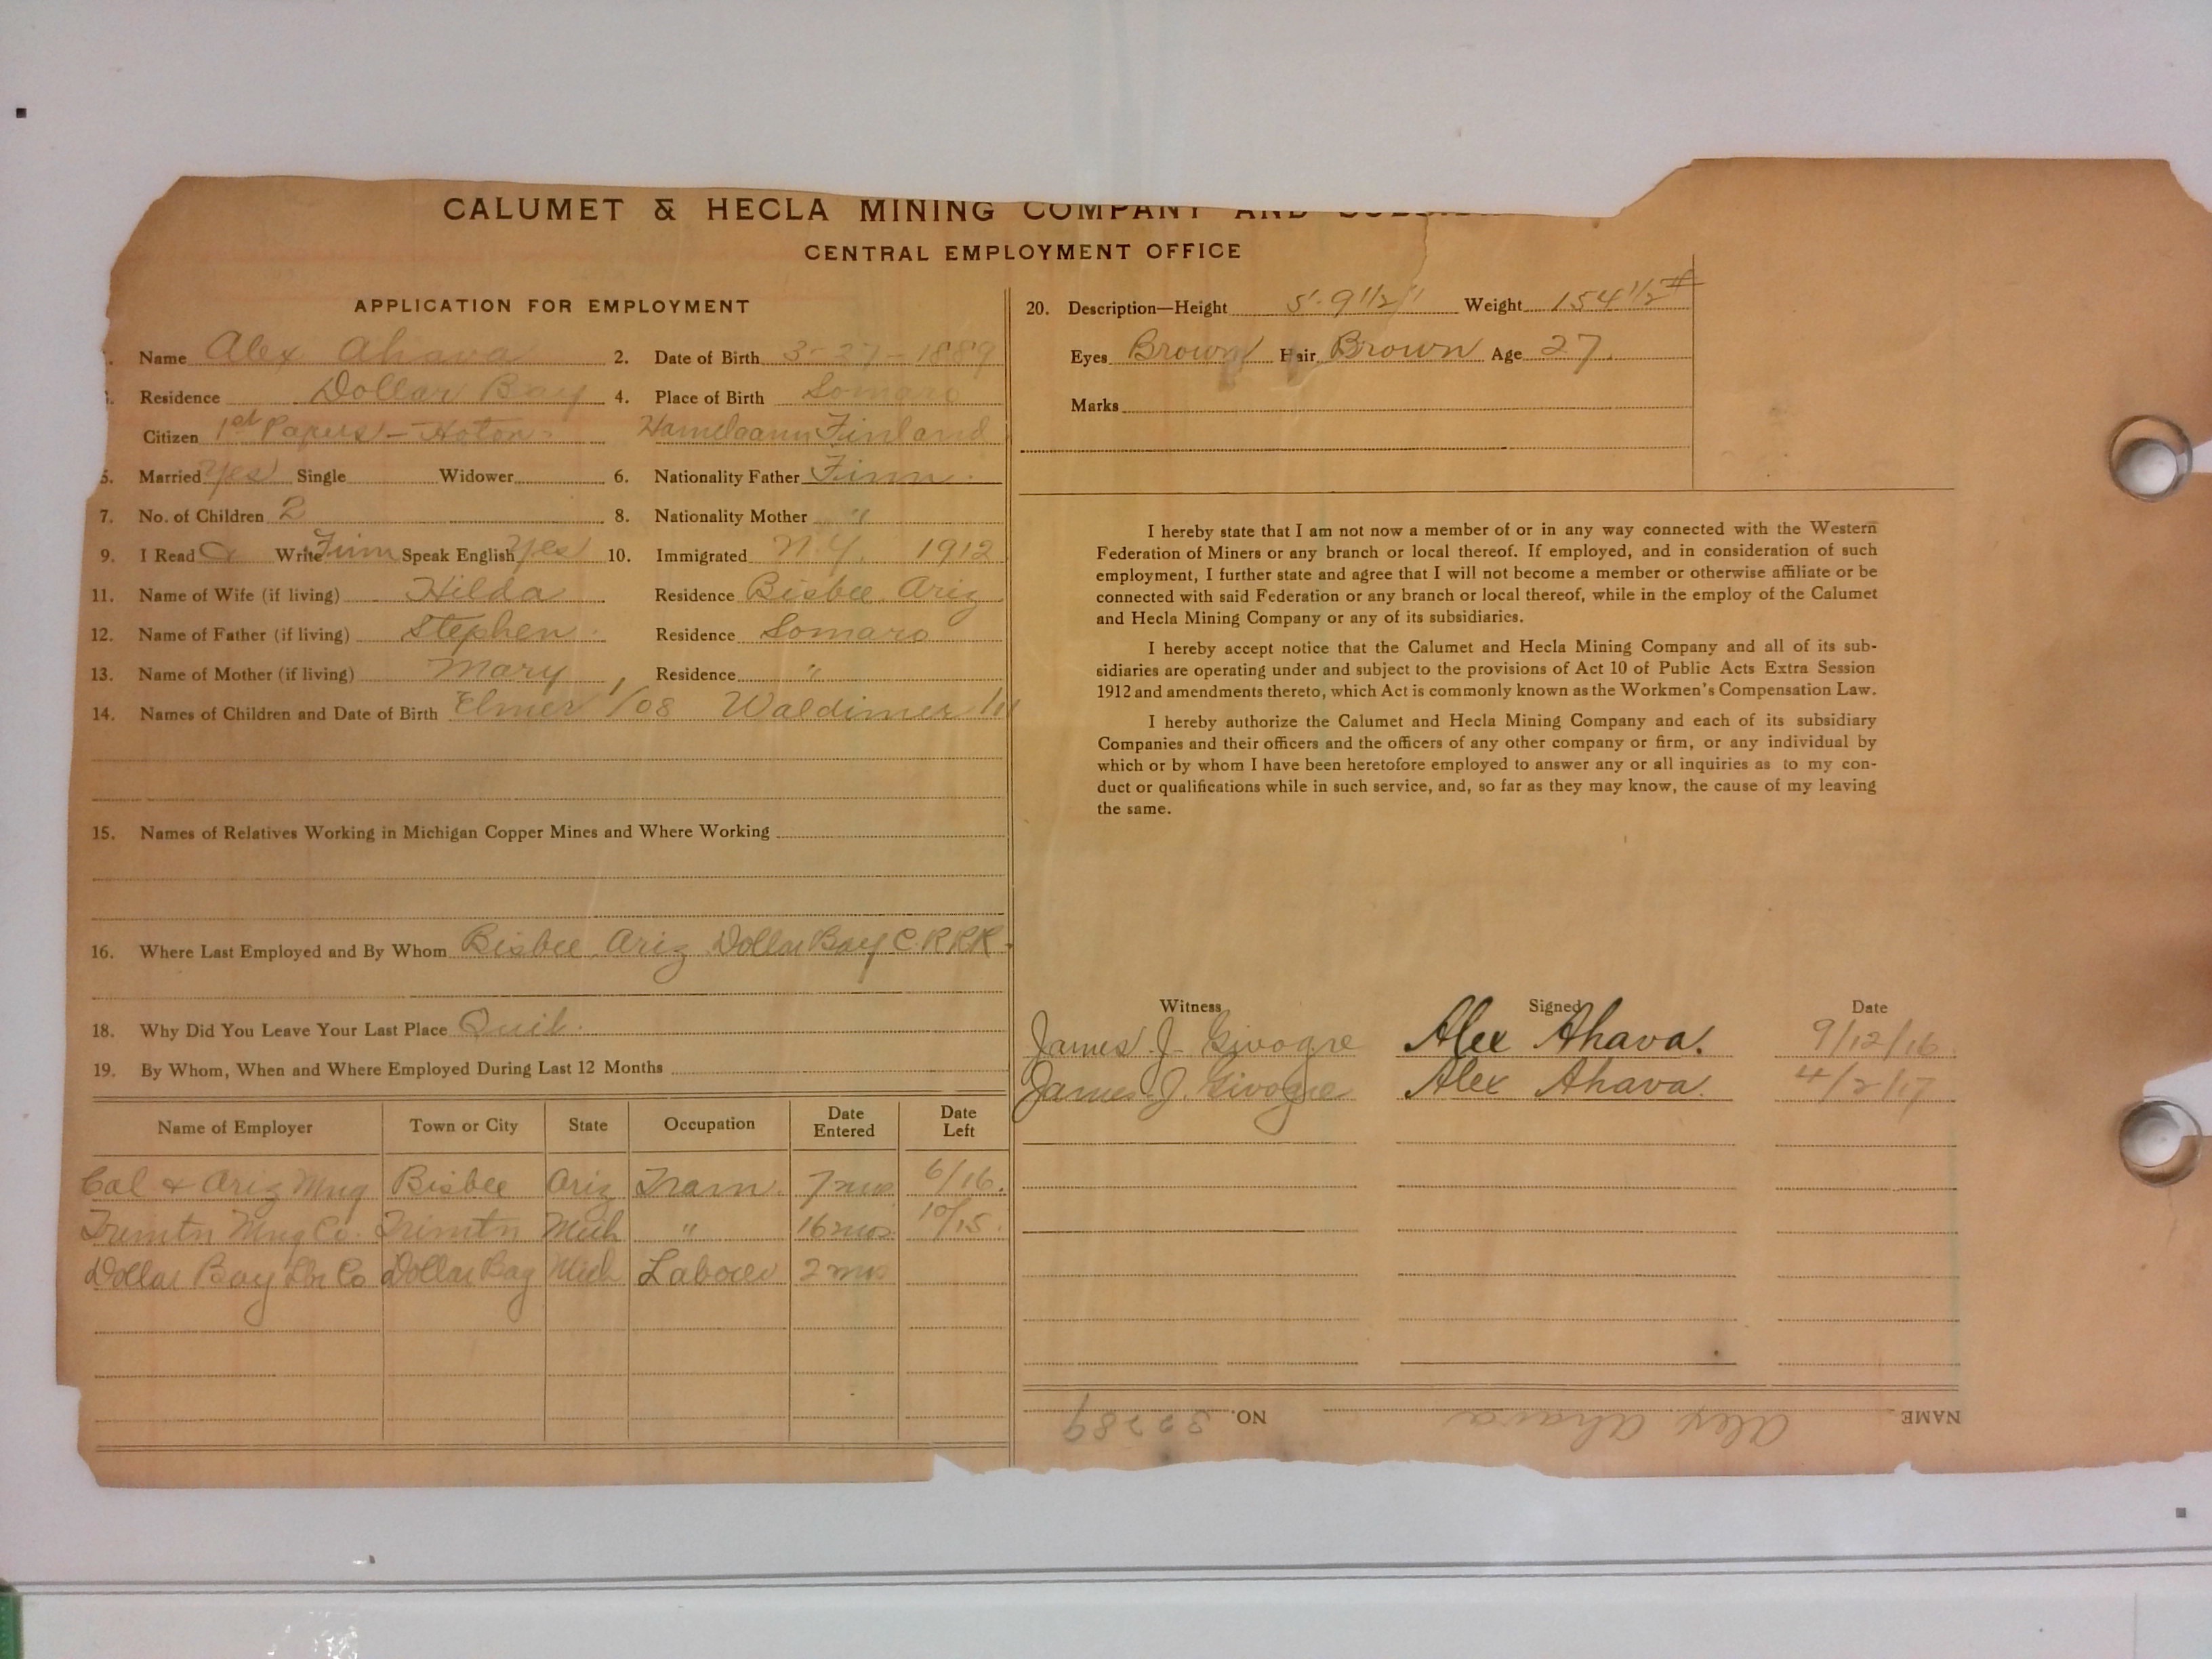 CALUMET & HECLA MINING COMPANY AND
CENTRAL EMPLOYMENT OFFICE
APPLICATION FOR EMPLOYMENT
Name Alex Ahava 2. Date of Birth 3-27-1889
Residence Dollar Bay 4. Place of Birth Somaro
Citizen 1st Papers - Hoton Finland
5. Married yes Single Widower 6. Nationality Father Finn.
7. No. of Children 2 8. Nationality Mother "
9. I Read & Write Finn Speak English yes 10. Immigrated N.Y. 1912
11. Name of Wife (if living) Hilda Residence Bisbee Ariz
12. Name of Father (if living) Stephen Residence Somaro
13. Name of Mother (if living) Mary Residence "
14. Names of Children and Date of Birth Elmer 1/08 Waldimer
15. Names of Relatives Working in Michigan Copper Mines and Where Working
16. Where Last Employed and By Whom Bisbee Ariz Dollar Bay C.RRR.
18. Why Did You Leave Your Last Place Quit.
19. By Whom, When and Where Employed During Last 12 Months
Name of Employer Town or City State Occupation Date Entered Date Left
Cal & Ariz Mng Bisbee Ariz Tram. 7 mos 6/16.
Trimtn Mng Co. Trimtn Mich " 16 mos 10/15.
Dollar Bay Co Dollar Bay Mich Laborer 2 mos
20. Description—Height 5'-9 1/2" Weight 154 1/2 #
Eyes Brown Hair Brown Age 27.
Marks
I hereby state that I am not now a member of or in any way connected with the Western
Federation of Miners or any branch or local thereof. If employed, and in consideration of such
employment, I further state and agree that I will not become a member or otherwise affiliate or be
connected with said Federation or any branch or local thereof, while in the employ of the Calumet
and Hecla Mining Company or any of its subsidiaries.
I hereby accept notice that the Calumet and Hecla Mining Company and all of its sub-
sidiaries are operating under and subject to the provisions of Act 10 of Public Acts Extra Session
1912 and amendments thereto, which Act is commonly known as the Workmen's Compensation Law.
I hereby authorize the Calumet and Hecla Mining Company and each of its subsidiary
Companies and their officers and the officers of any other company or firm, or any individual by
which or by whom I have been heretofore employed to answer any or all inquiries as to my con-
duct or qualifications while in such service, and, so far as they may know, the cause of my leaving
the same.
Witness Signed Date
James J. Givogre Alex Ahava. 9/12/16.
James J. Givogre Alex Ahava. 4/2/17
NAME Alex Ahava NO. 32289